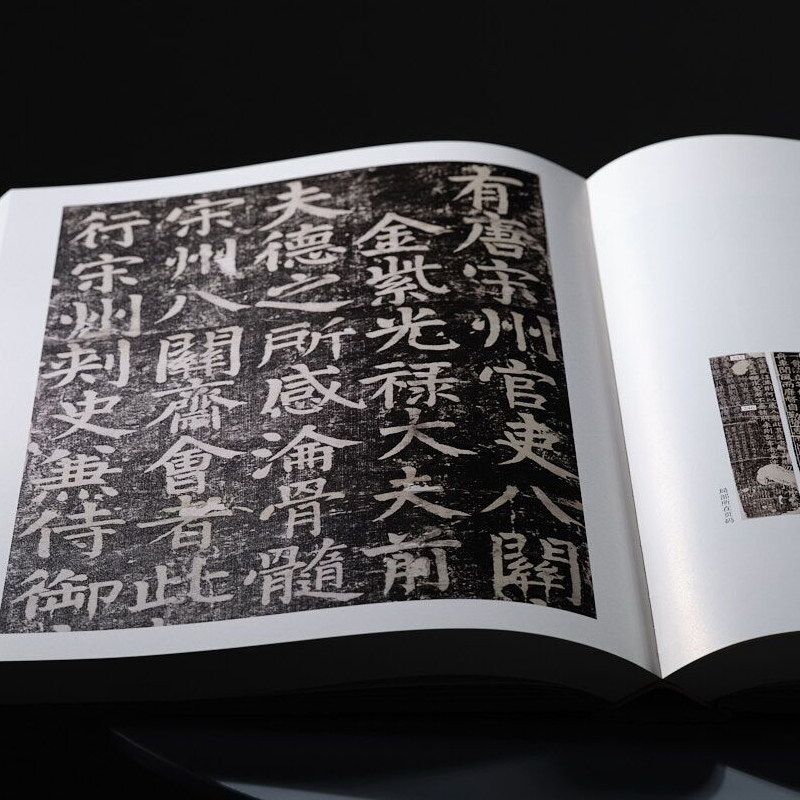 有唐宋州官吏八關
金紫光禄大夫前
夫德之所感淪骨髓
宋州八關齋會者此
行宋州刾史兼侍御
局部所在页码